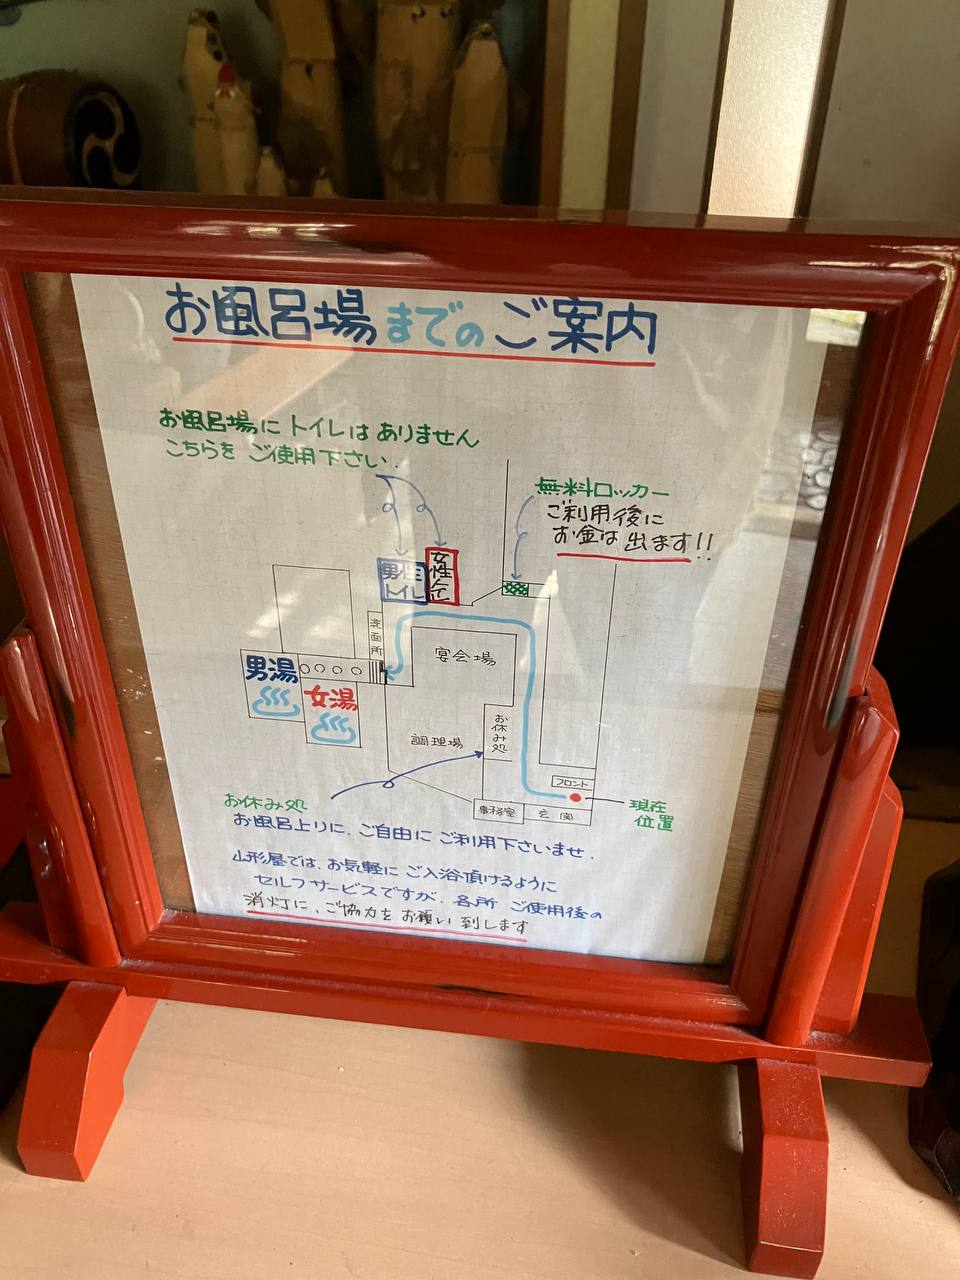 お風呂場までのご案内
お風呂場にトイレはありません
こちらをご使用下さい.
無料ロッカー
ご利用後に
お金は出ます!!
男性
トイレ
女性
洗面所
宴会場
男湯
女湯
お休み処
調理場
フロント
現在
位置
事務室
玄関
お休み処
お風呂上りに、ご自由にご利用下さいませ.
山形屋では、お気軽にご入浴頂けるように
セルフサービスですが、各所ご使用後の
消灯に、ご協力をお願い致します